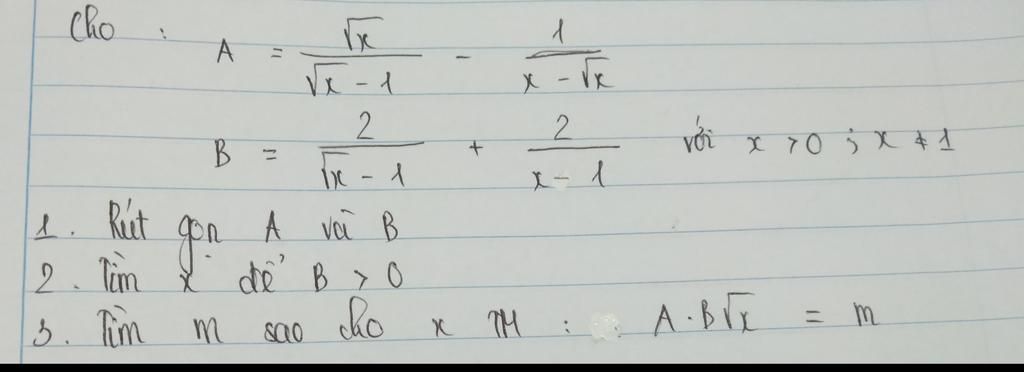 Cho : A = \frac{\sqrt{x}}{\sqrt{x} - 1} - \frac{1}{x - \sqrt{x}}
B = \frac{2}{\sqrt{x} - 1} + \frac{2}{x - 1} với x > 0 ; x ≠ 1
1. Rút gọn A và B
2. Tìm x để B > 0
3. Tìm m sao cho x TM : A.B\sqrt{x} = m